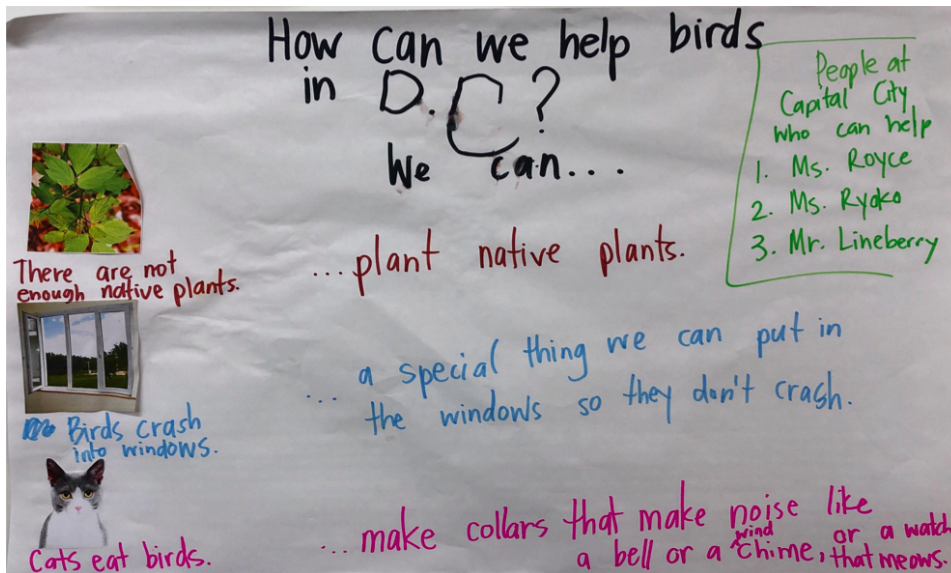 How can we help birds
in D.C?
We can...
People at
Capital City
who can help
1. Ms. Royce
2. Ms. Ryoko
3. Mr. Lineberry
There are not
enough native plants.
...plant native plants.
Birds crash
into windows.
... a special thing we can put in
the windows so they don't crash.
Cats eat birds.
...make collars that make noise like
a bell or a wind chime, or a watch
that meows.